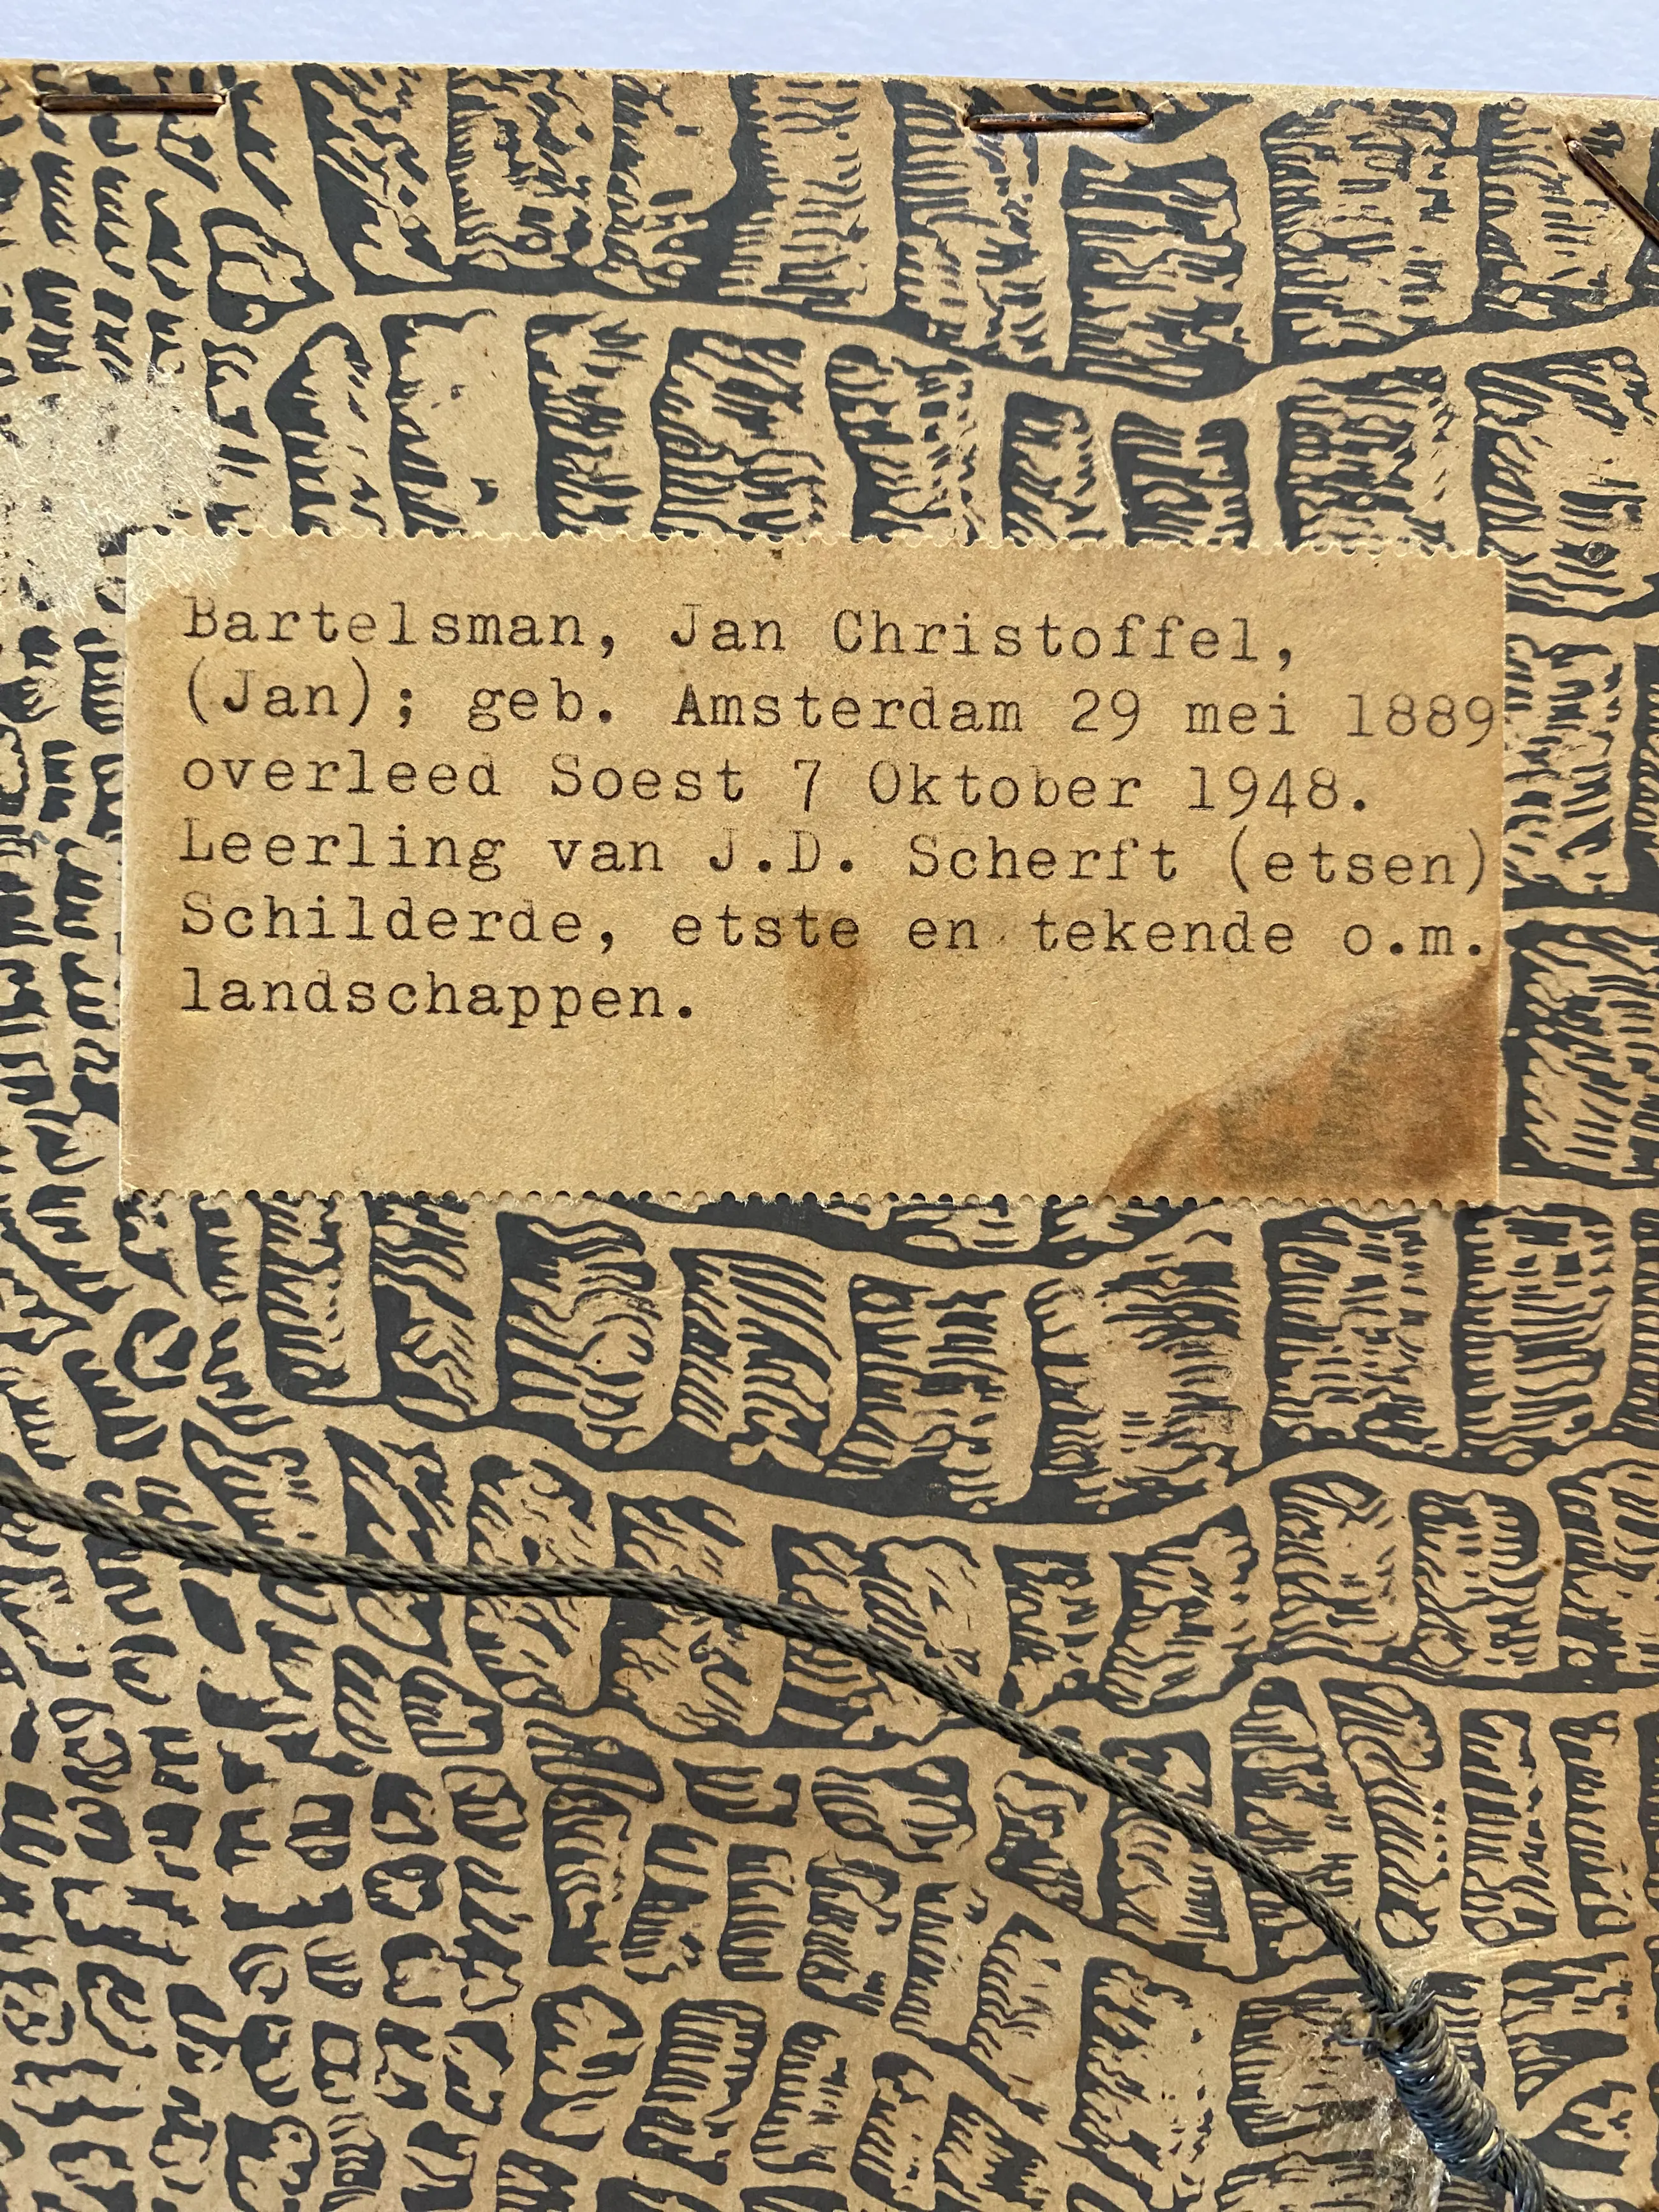 Bartelsman, Jan Christoffel,
(Jan); geb. Amsterdam 29 mei 1889
overleed Soest 7 Oktober 1948.
Leerling van J.D. Scherft (etsen)
Schilderde, etste en tekende o.m.
landschappen.